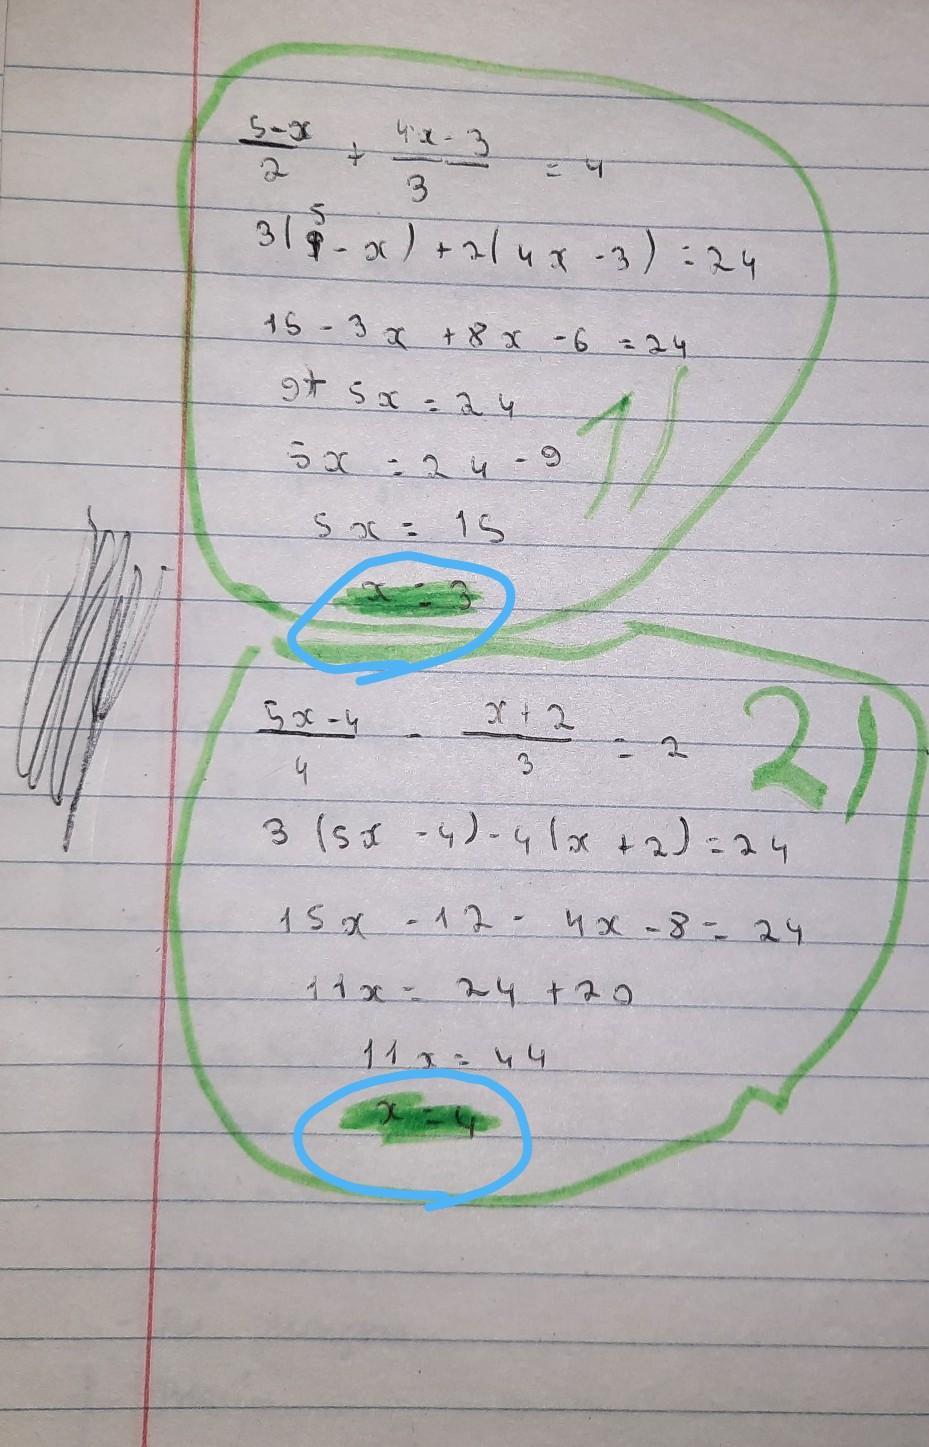 (5-x)/2 + (4x-3)/3 = 4
3(5-x) + 2(4x-3) = 24
15-3x +8x -6 = 24
9+5x = 24
5x = 24-9
1)
5x = 15
x = 3
(5x-4)/4 - (x+2)/3 = 2
2)
3(5x-4)-4(x+2)=24
15x -12 - 4x -8 = 24
11x = 24+20
11x = 44
x = 4